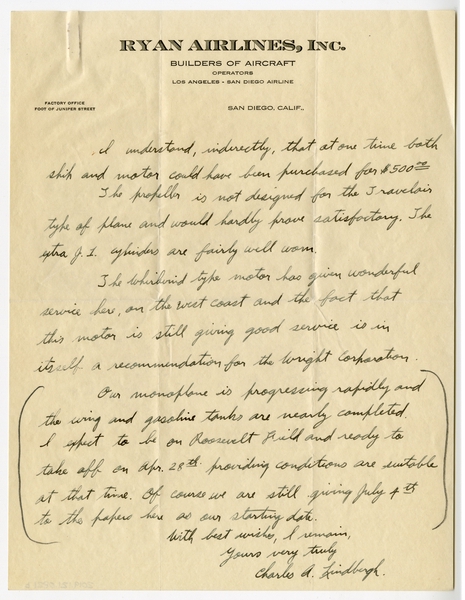 RYAN AIRLINES, INC.
BUILDERS OF AIRCRAFT
OPERATORS
LOS ANGELES - SAN DIEGO AIRLINE
FACTORY OFFICE
FOOT OF JUNIPER STREET
SAN DIEGO, CALIF.,
I understand, indirectly, that at one time both
ship and motor could have been purchased for $500.00
The propeller is not designed for the Travelair
type of plane and would hardly prove satisfactory. The
extra J.1. cylinders are fairly well worn.
The whirlwind type motor has given wonderful
service here, on the west coast and the fact that
this motor is still giving good service is in
itself a recommendation for the Wright Corporation.
(Our monoplane is progressing rapidly and
the wing and gasoline tanks are nearly completed.
I expect to be on Roosevelt Field and ready to
take off on Apr. 28th. providing conditions are suitable
at that time. Of course we are still giving July 1st
to the papers here as our starting date.)
With best wishes, I remain,
Yours very truly
Charles A. Lindbergh.